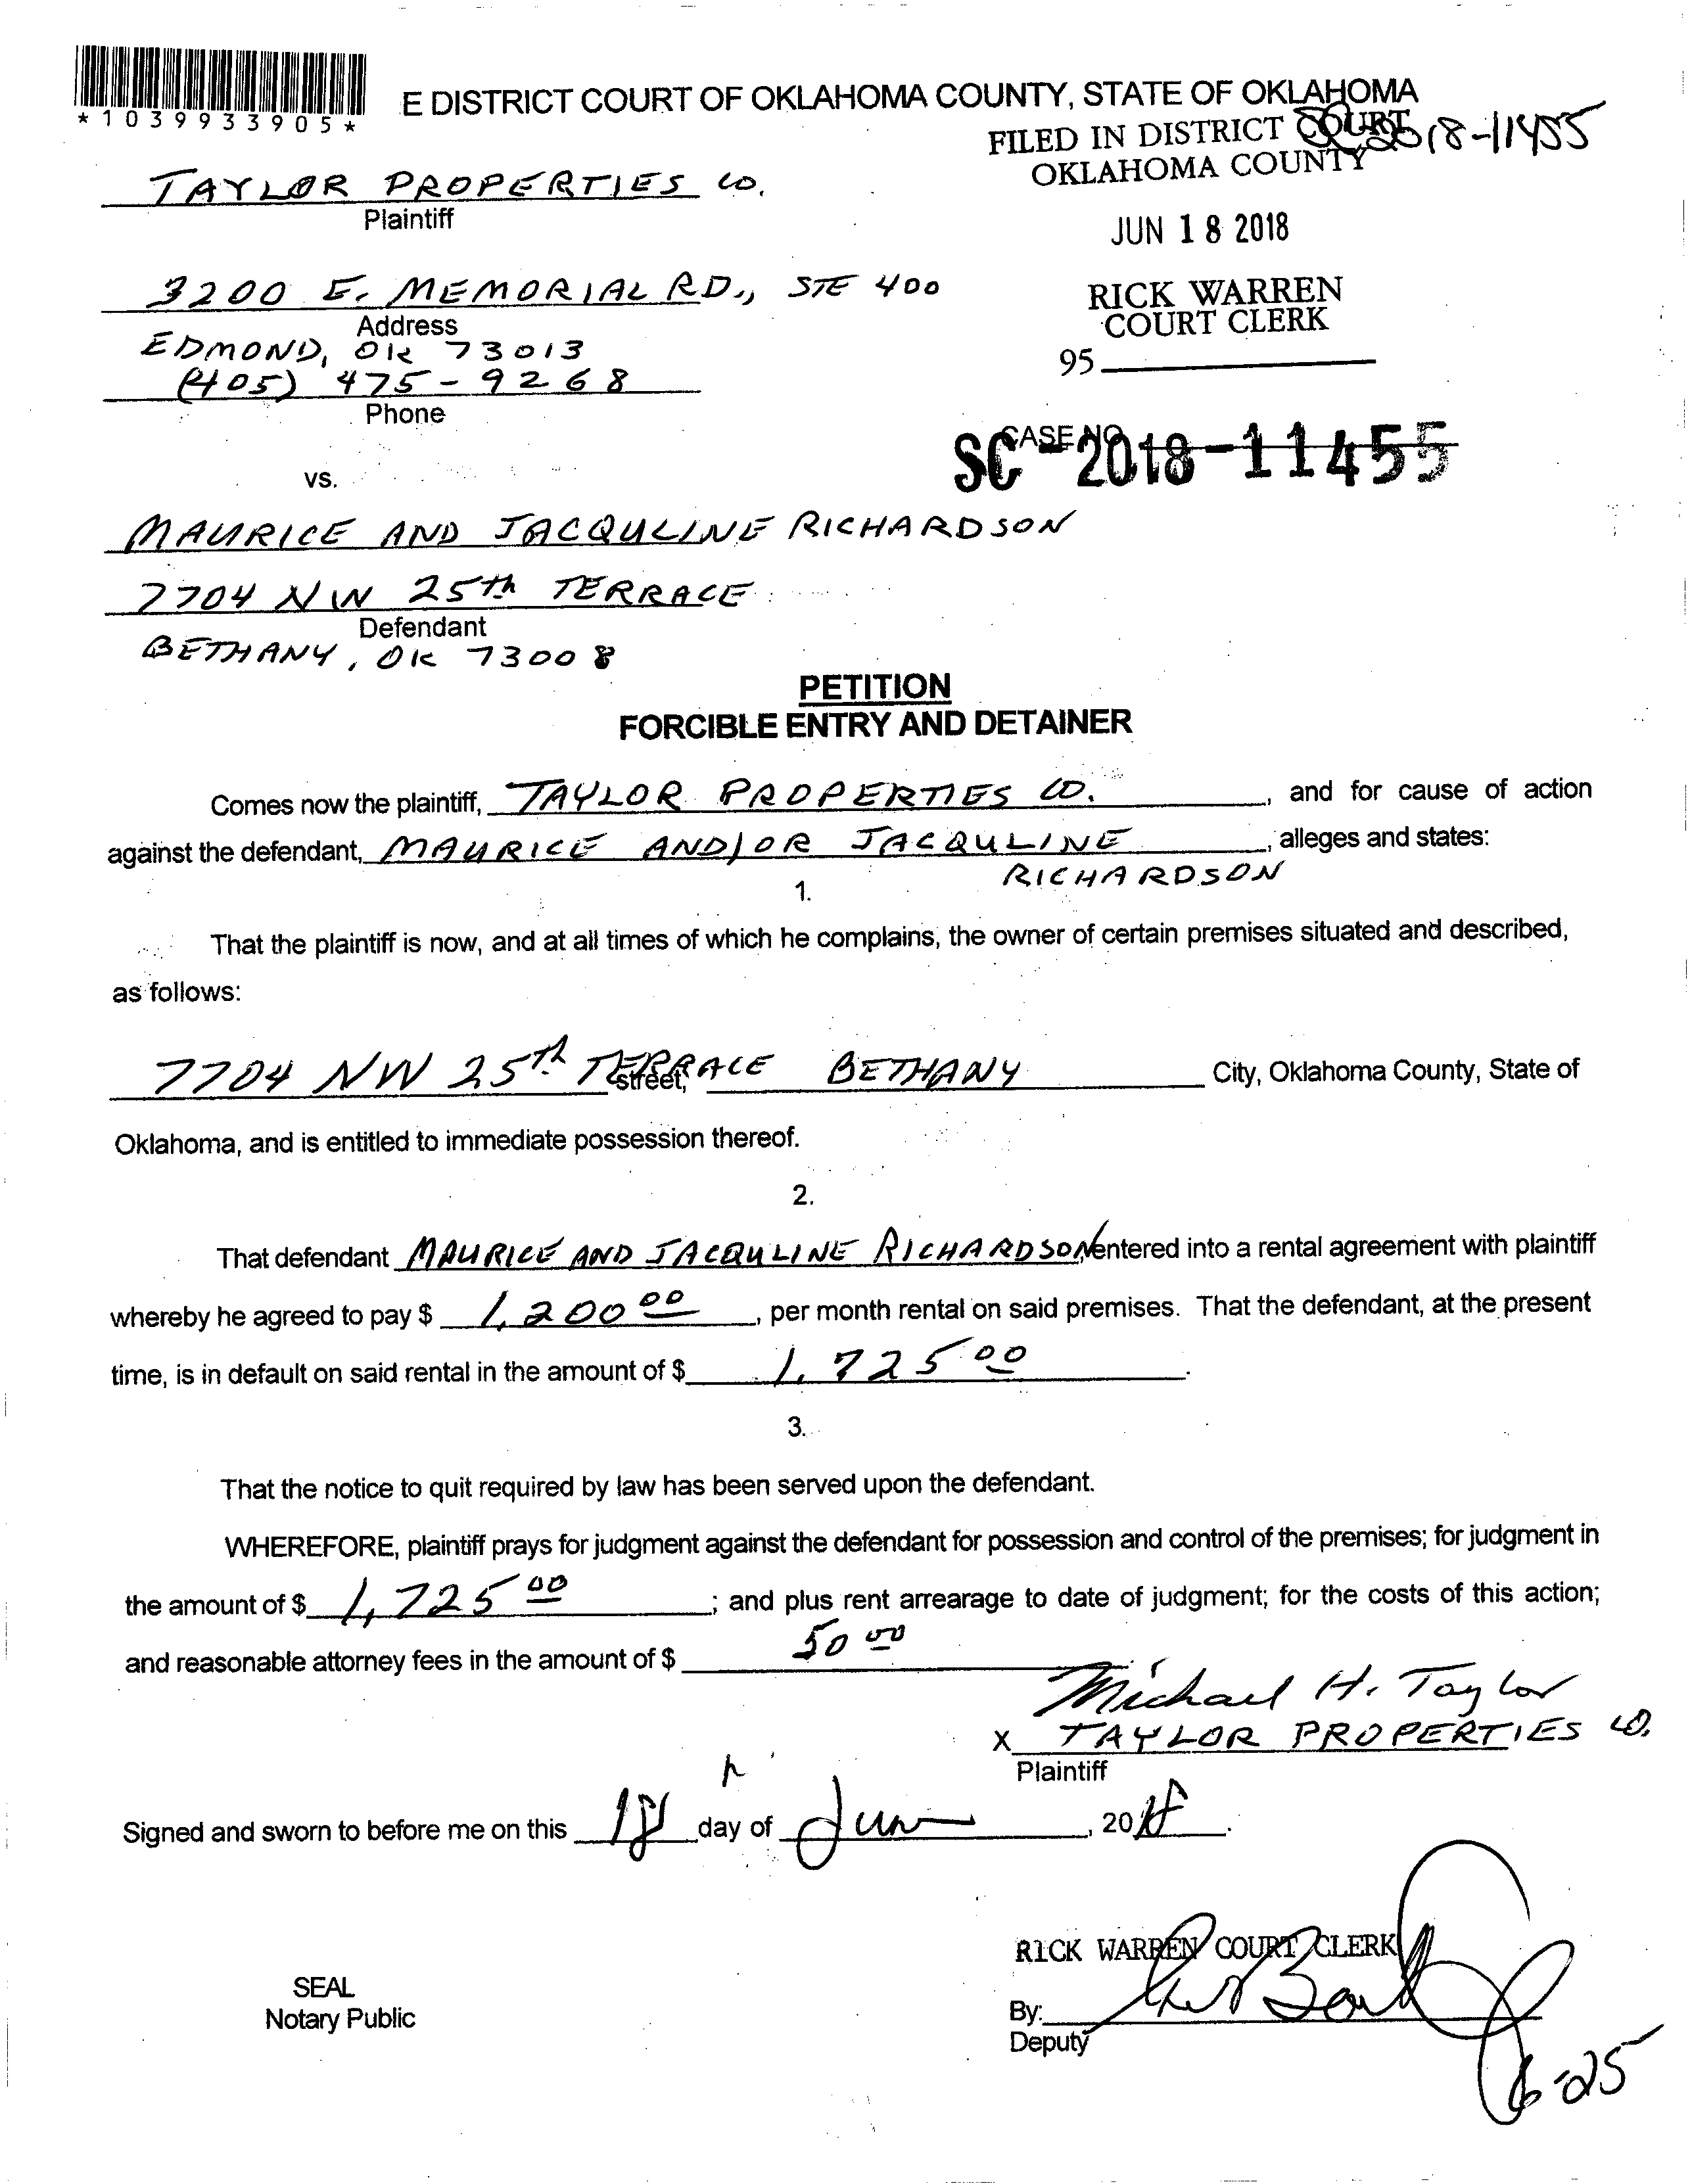 *1039933905*
E DISTRICT COURT OF OKLAHOMA COUNTY, STATE OF OKLAHOMA
FILED IN DISTRICT COURT
SC2018-11455
OKLAHOMA COUNTY
TAYLOR PROPERTIES CO.
Plaintiff
JUN 18 2018
3200 E. MEMORIAL RD., STE 400
Address
RICK WARREN
COURT CLERK
EDMOND, OK 73013
95
(405) 475-9268
Phone
CASE NO.
SC-2018-11455
vs.
MAURICE AND JACQULINE RICHARDSON
7704 NW 25th TERRACE
Defendant
BETHANY, OK 73008
PETITION
FORCIBLE ENTRY AND DETAINER
Comes now the plaintiff, TAYLOR PROPERTIES CO., and for cause of action
against the defendant, MAURICE AND/OR JACQULINE, alleges and states:
RICHARDSON
1.
That the plaintiff is now, and at all times of which he complains, the owner of certain premises situated and described,
as follows:
7704 NW 25th TERRACE street, BETHANY City, Oklahoma County, State of
Oklahoma, and is entitled to immediate possession thereof.
2.
That defendant MAURICE AND JACQULINE RICHARDSON entered into a rental agreement with plaintiff
whereby he agreed to pay $ 1,200 00, per month rental on said premises. That the defendant, at the present
time, is in default on said rental in the amount of $ 1,725 00.
3.
That the notice to quit required by law has been served upon the defendant.
WHEREFORE, plaintiff prays for judgment against the defendant for possession and control of the premises; for judgment in
the amount of $ 1,725 00; and plus rent arrearage to date of judgment; for the costs of this action;
and reasonable attorney fees in the amount of $ 50 00
Michael H. Taylor
X TAYLOR PROPERTIES CO.
Plaintiff
Signed and sworn to before me on this 18 day of June, 2018.
RICK WARREN COURT CLERK
SEAL
Notary Public
By:
Deputy
6-25